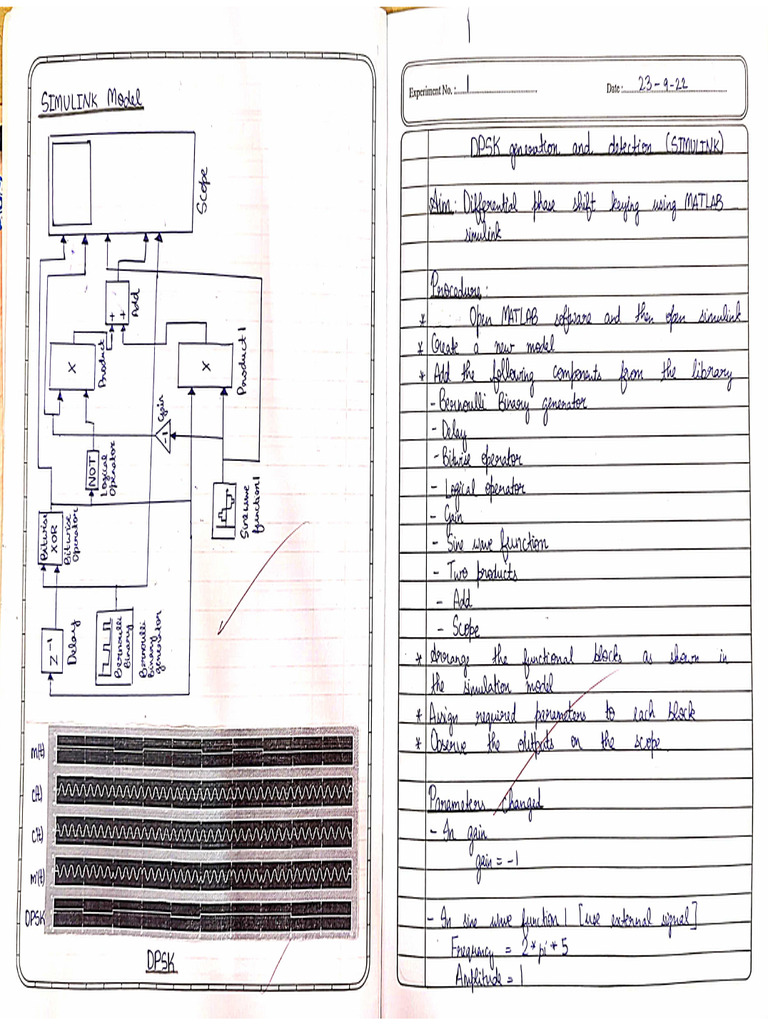 SIMULINK Model
Scope
+
+
Add
X
Product
X
Product 1
-1
Gain
NOT
Logical
Operator
Sine wave
function 1
Bitwise
XOR
Bitwise
Operator
Z-1
Delay
Bernoulli
Binary
Bernoulli
Binary
generator
m(t)
c(t)
c(t)
m'(t)
DPSK
DPSK
Experiment No. : 1
Date : 23-9-22
DPSK generation and detection (SIMULINK)
Aim: Differential phase shift keying using MATLAB
simulink
Procedure:
* Open MATLAB software and then open simulink
* Create a new model
* Add the following components from the library
- Bernoulli Binary generator
- Delay
- Bitwise operator
- Logical operator
- Gain
- Sine wave function
- Two products
- Add
- Scope
* Arrange the functional blocks as shown in
the simulation model
* Assign required parameters to each block
* Observe the outputs on the scope
Parameters Changed
- In gain
gain = -1
- In sine wave function 1 [use external signal]
Frequency = 2*pi*5
Amplitude = 1